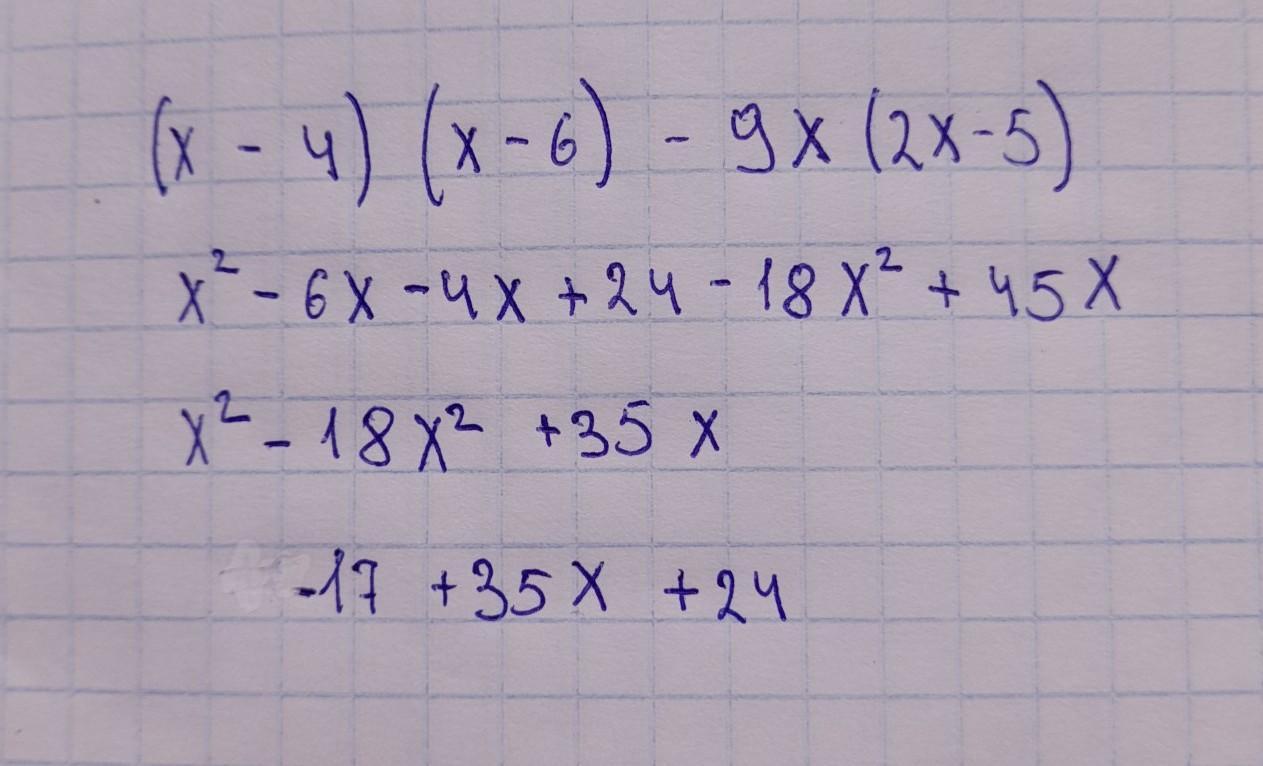 (x - 4) (x - 6) - 9x (2x - 5)
x² - 6x - 4x + 24 - 18x² + 45x
x² - 18x² + 35x
-17 + 35x + 24